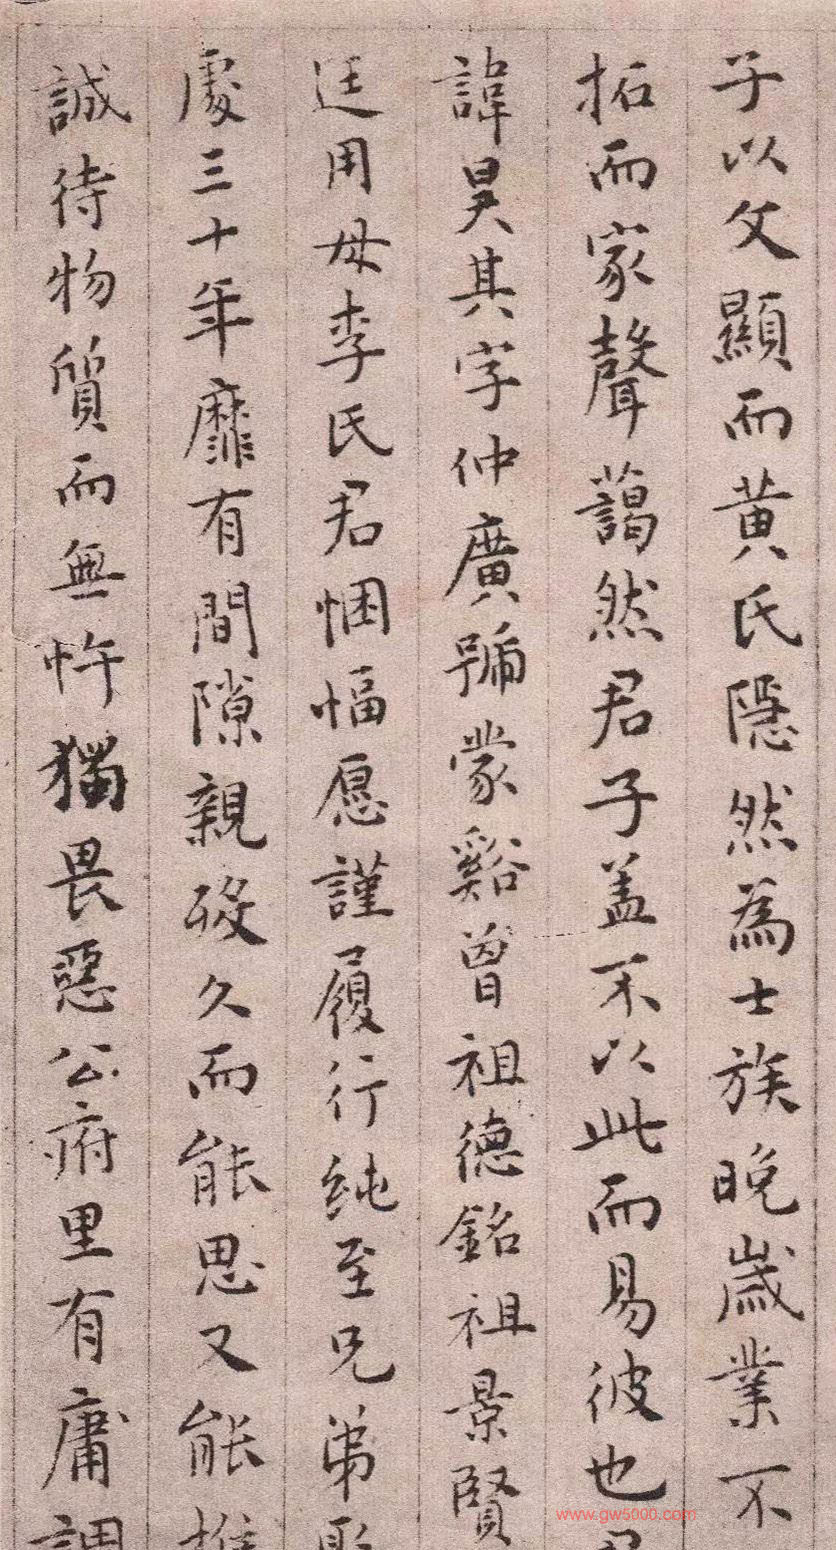 子以文顯而黄氏隱然為士族晚歲業不
拓而家聲藹然君子盖不以此而易彼也君
諱昊其字仲廣號蒙谿曾祖德銘祖景賢
廷用母李氏君悃愊愿謹履行純至兄弟
處三十年靡有間隙親歿久而能思又能推
誠待物質而無忤獨畏惡公府里有庸調
www.gw5000.com